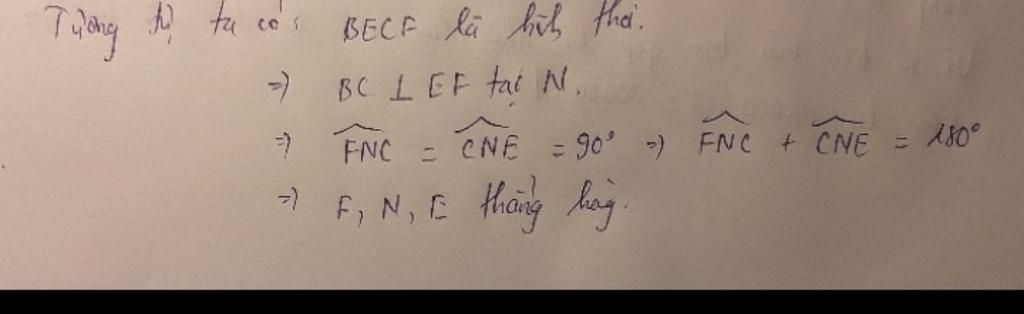 Tương tự ta có: BECF là hình thoi.
=) BC ⊥ EF tại N.
=) \widehat{FNC} = \widehat{CNE} = 90° =) \widehat{FNC} + \widehat{CNE} = 180°
=) F, N, E thẳng hàng.